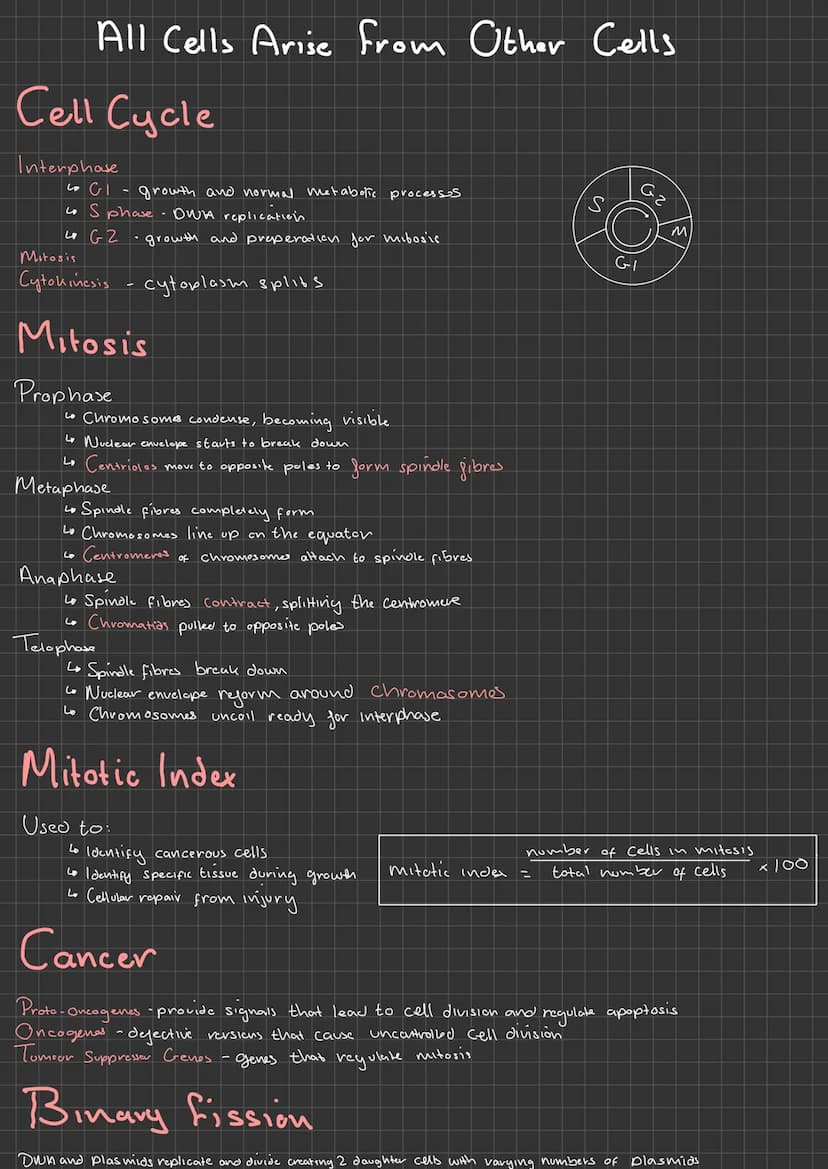 All Cells Arise From Other Cells
Cell Cycle
Interphase
↳ G1 - growth and normal metabolic processes
↳ S phase - DNA replication
↳ G2 - growth and preperation for mitosis
Mitosis
Cytokinesis - cytoplasm splits
S
G2
M
G1
Mitosis
Prophase
↳ Chromosomes condense, becoming visible
↳ Nuclear envelope starts to break down
↳ Centrioles move to opposite poles to form spindle fibres
Metaphase
↳ Spindle fibres completely form
↳ Chromosomes line up on the equator
↳ Centromeres of chromosomes attach to spindle fibres
Anaphase
↳ Spindle fibres contract, splitting the centromere
↳ Chromatids pulled to opposite poles
Telophase
↳ Spindle fibres break down
↳ Nuclear envelope reform around chromosomes
↳ Chromosomes uncoil ready for interphase
Mitotic Index
Used to:
↳ Identify cancerous cells
↳ Identify specific tissue during growth
↳ Cellular repair from injury
number of cells in mitosis
mitotic index = total number of cells × 100
Cancer
Proto-oncogenes - provide signals that lead to cell division and regulate apoptosis
Oncogenes - defective versions that cause uncontrolled cell division
Tumour Suppressor Genes - genes that regulate mitosis
Binary fission
DNA and plasmids replicate and divide creating 2 daughter cells with varying numbers of plasmids